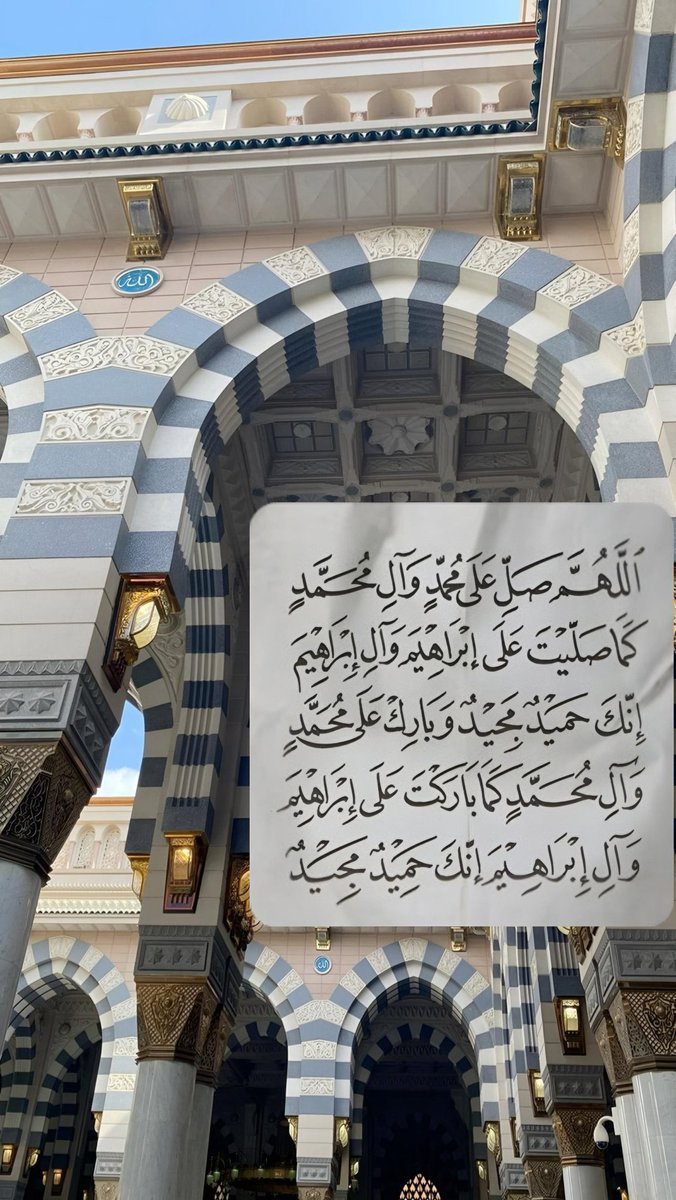 الله
اَللَّهُمَّ صَلِّ عَلَى مُحَمَّدٍ وَآلِ مُحَمَّدٍ
كَمَا صَلَّيْتَ عَلَى إِبْرَاهِيْمَ وَآلِ إِبْرَاهِيْمَ
إِنَّكَ حَمِيْدٌ مَجِيْدٌ وَبَارِكْ عَلَى مُحَمَّدٍ
وَآلِ مُحَمَّدٍ كَمَا بَارَكْتَ عَلَى إِبْرَاهِيْمَ
وَآلِ إِبْرَاهِيْمَ إِنَّكَ حَمِيْدٌ مَجِيْدٌ
الله